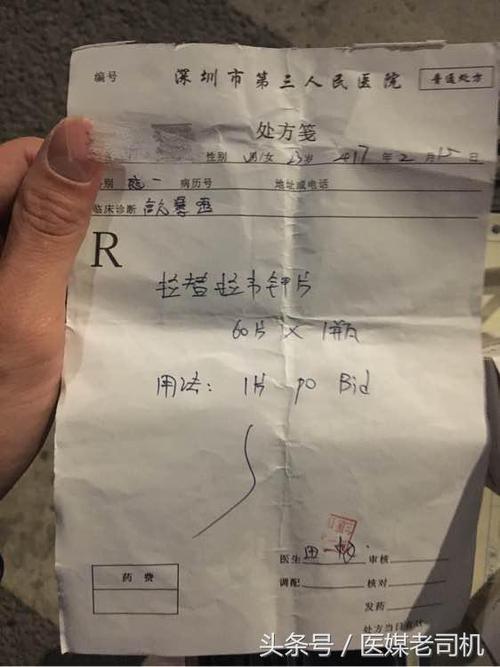 编号 深圳市第三人民医院 普通处方
处方笺
性别 男/女 23岁 2017年2月15日
别 病历号 地址或电话
临床诊断
R
拉替拉韦钾片
60片 × 1瓶
用法: 1片 po Bid
医生 审核
药费 调配 核对
发药
处方当日有效
头条号/医媒老司机